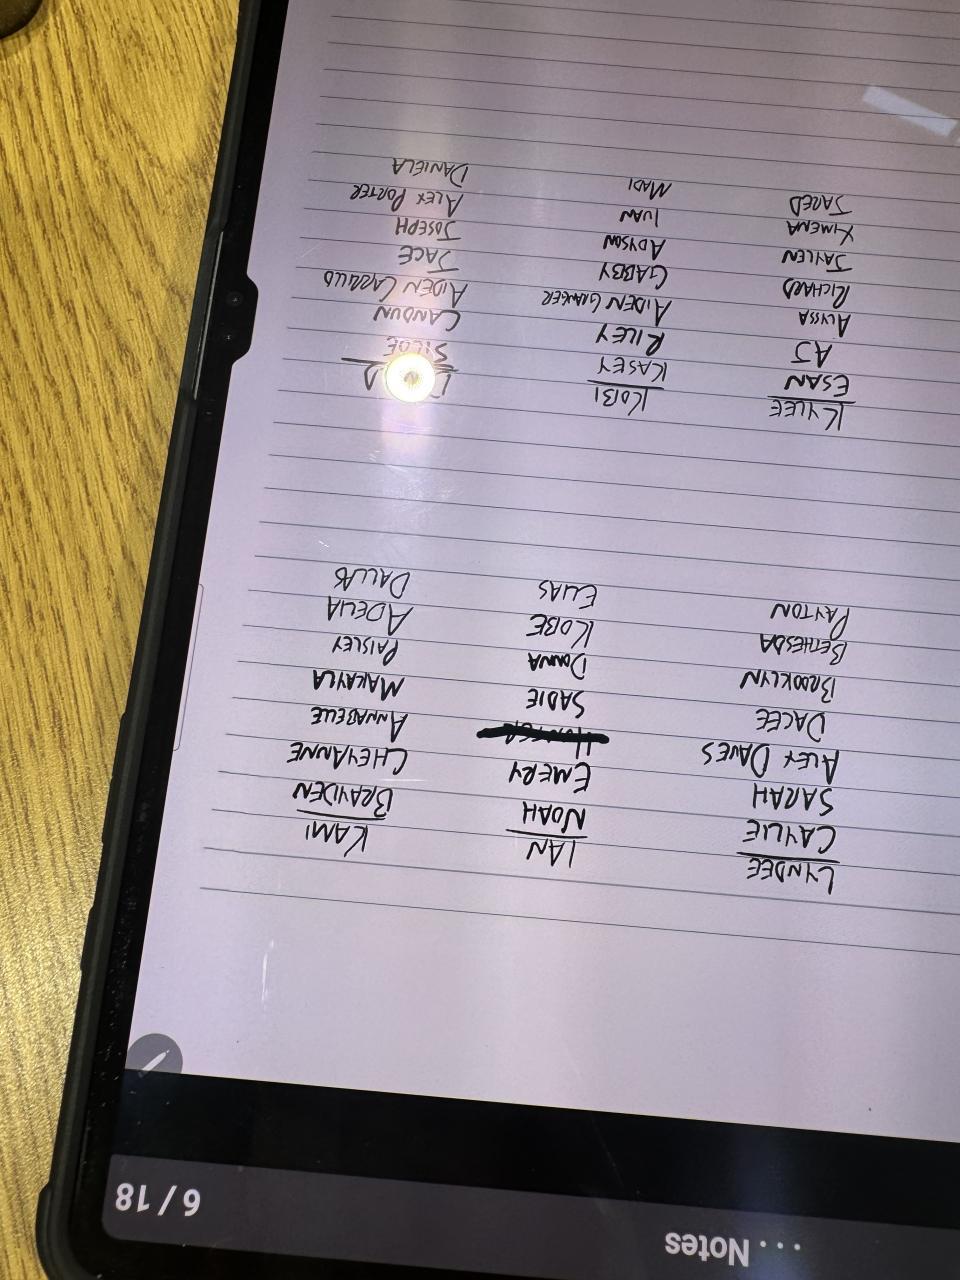 ... Notes
6 / 18
LYNDEE
CAYLIE
SARAH
ALEX DAVES
DACEE
BROOKLYN
BETHESDA
PAYTON
IAN
NOAH
EMERY
SADIE
DONNA
KOBE
ELIAS
KAMI
BRAYDEN
CHEYANNE
ANNABELLE
MAKAYLA
PAISLEY
ADELIA
DALLAS
KYLEE
ESAN
AJ
ALYSSA
RICHARD
JAYLEN
XIMENA
JARED
KOBI
KASEY
RILEY
AIDEN GRANGER
GABBY
ADYSON
IVAN
MADI
CANDUN
AIDEN CARRILLO
JACE
JOSEPH
ALEX PORTER
DANIELA